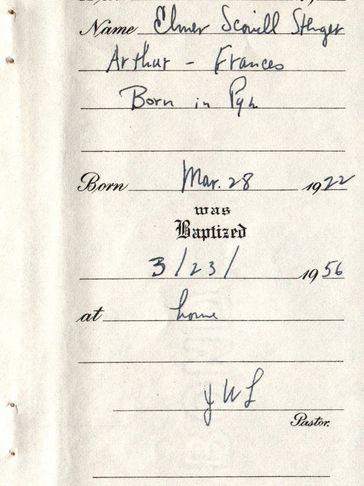 Name Elmer Scovill Stenger
Arthur - Frances
Born in Pgh
Born Mar. 28 1922
was
Baptized
3/23/ 1956
at home
JWL
Pastor.